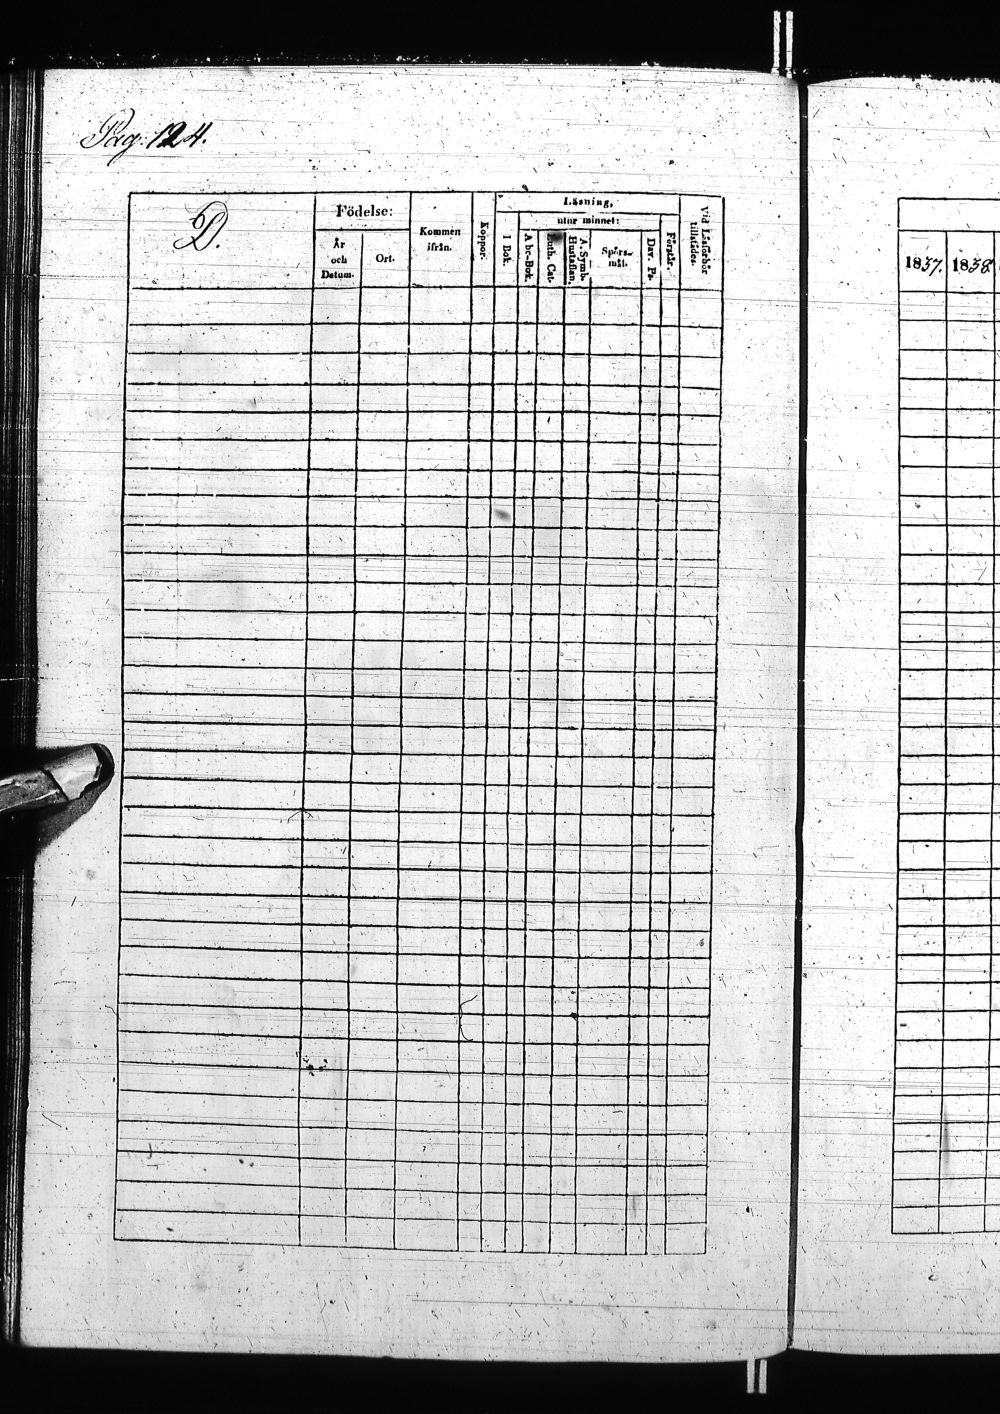 Pag. 124.
D.
Födelse:
År
och
Datum.
Ort.
Kommen
ifrån.
Koppor.
Läsning,
utur minnet:
I Bok.
A bc-Bok.
Luth. Cat.
A. Symb.
Hustaflan.
Spörs-
mål.
Dav. Ps.
Förstår.
Vid Läsförhör
tillstädes.
1837. 1838.